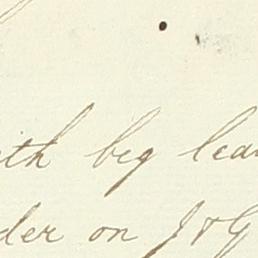 ith beg lea
der on J & G